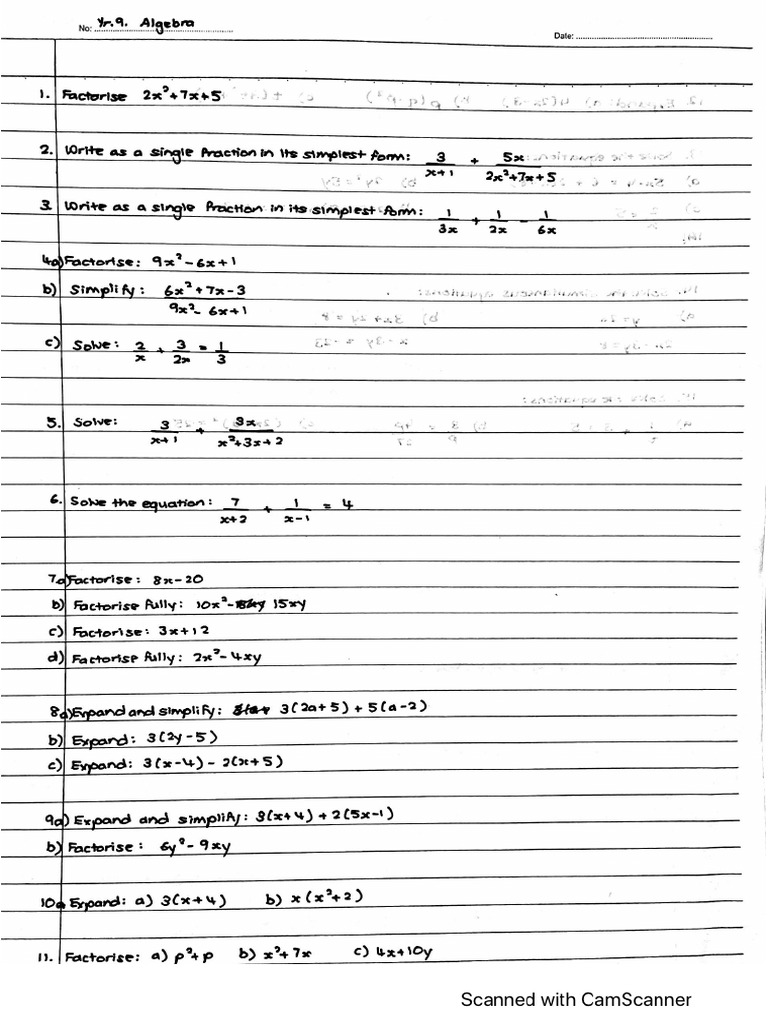 No: Yr.9. Algebra
Date:
1. Factorise 2x²+7x+5
2. Write as a single fraction in its simplest form: 3/(x+1) + 5x/(2x²+7x+5)
3. Write as a single fraction in its simplest form: 1/3x + 1/2x - 1/6x
4a) Factorise: 9x²-6x+1
b) Simplify: (6x²+7x-3)/(9x²-6x+1)
c) Solve: 2/x + 3/2x = 1/3
5. Solve: 3/(x+1) + 3x/(x²+3x+2)
6. Solve the equation: 7/(x+2) + 1/(x-1) = 4
7a) Factorise: 8x-20
b) Factorise fully: 10x²- 15xy
c) Factorise: 3x+12
d) Factorise fully: 2x²-4xy
8a) Expand and simplify: 3(2a+5)+5(a-2)
b) Expand: 3(2y-5)
c) Expand: 3(x-4)-2(x+5)
9a) Expand and simplify: 3(x+4)+2(5x-1)
b) Factorise: 6y²-9xy
10. Expand: a) 3(x+4) b) x(x²+2)
11. Factorise: a) p²+p b) x²+7x c) 4x+10y
Scanned with CamScanner